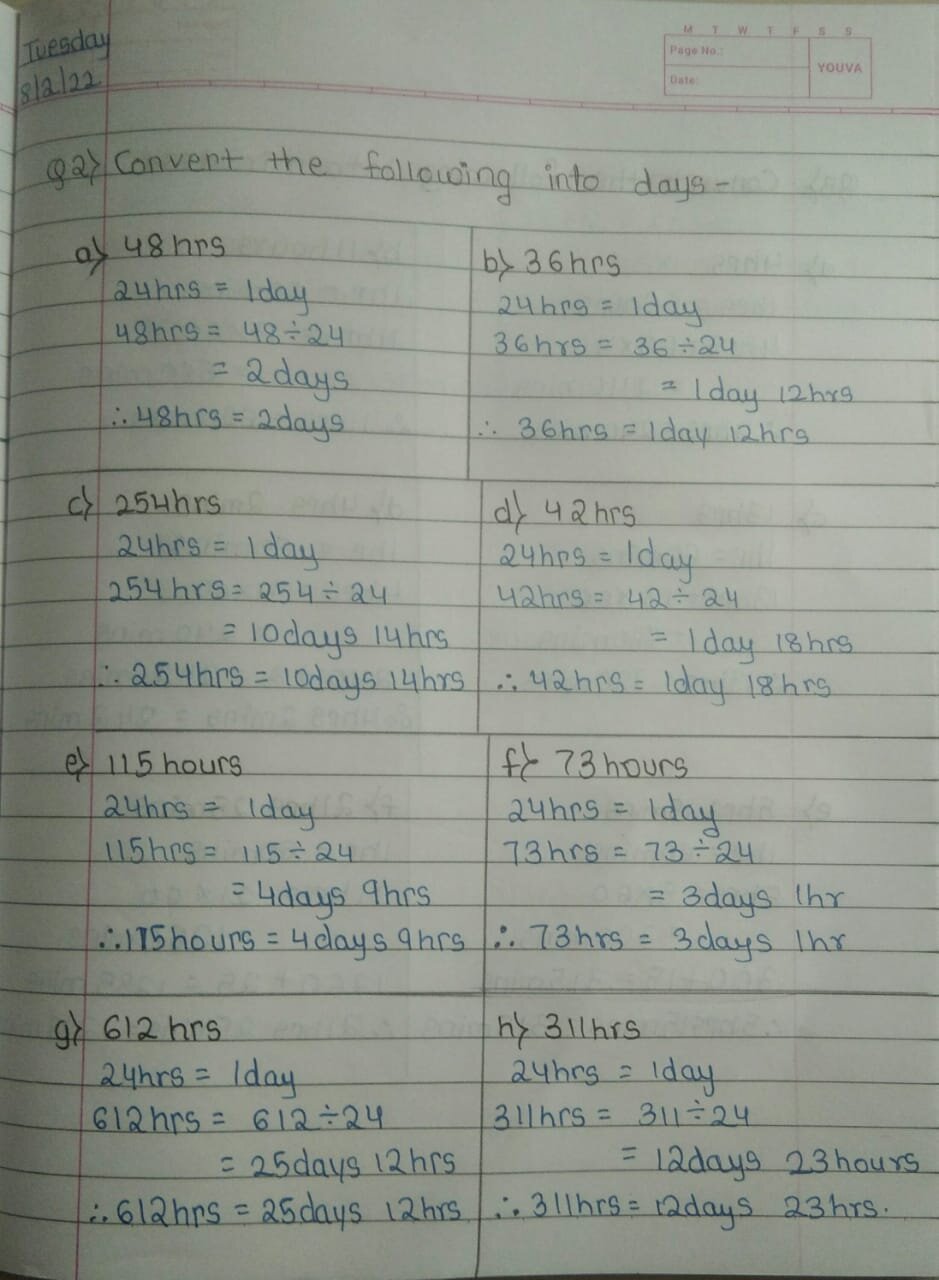 Tuesday
8/2/22
M T W T F S S
Page No.:
Date:
YOUVA
Q2) Convert the following into days -
a) 48hrs
24hrs = 1day
48hrs = 48÷24
= 2days
∴ 48hrs = 2days
b) 36hrs
24hrs = 1day
36hrs = 36÷24
= 1day 12hrs
∴ 36hrs = 1day 12hrs
c) 254hrs
24hrs = 1day
254hrs = 254÷24
= 10days 14hrs
∴ 254hrs = 10days 14hrs
d) 42hrs
24hrs = 1day
42hrs = 42÷24
= 1day 18hrs
∴ 42hrs = 1day 18hrs
e) 115hours
24hrs = 1day
115hrs = 115÷24
= 4days 9hrs
∴ 115hours = 4days 9hrs
f) 73hours
24hrs = 1day
73hrs = 73÷24
= 3days 1hr
∴ 73hrs = 3days 1hr
g) 612hrs
24hrs = 1day
612hrs = 612÷24
= 25days 12hrs
∴ 612hrs = 25days 12hrs
h) 311hrs
24hrs = 1day
311hrs = 311÷24
= 12days 23hours
∴ 311hrs = 12days 23hrs.